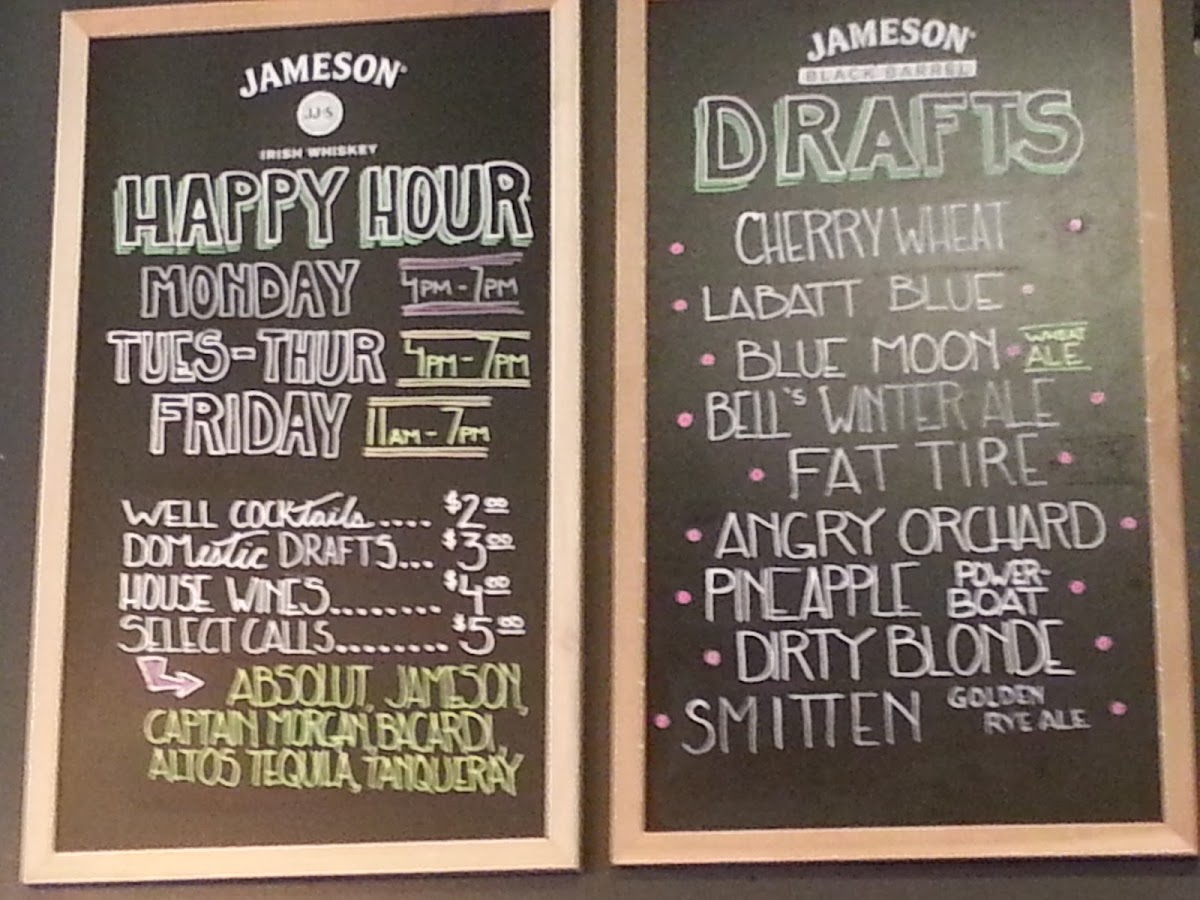 JAMESON
JJ&S
IRISH WHISKEY
HAPPY HOUR
MONDAY 4PM-7PM
TUES-THUR 4PM-7PM
FRIDAY 11AM-7PM
WELL COCKtails..... $2.00
DOMestic DRAFTS... $3.00
HOUSE WINES........ $4.00
SELECT CALLS........ $5.00
ABSOLUT, JAMESON,
CAPTAIN MORGAN, BACARDI,
ALTOS TEQUILA, TANQUERAY
JAMESON
BLACK BARREL
DRAFTS
CHERRY WHEAT
LABATT BLUE
BLUE MOON WHEAT ALE
BELL'S WINTER ALE
FAT TIRE
ANGRY ORCHARD
PINEAPPLE POWER-BOAT
DIRTY BLONDE
SMITTEN GOLDEN RYE ALE